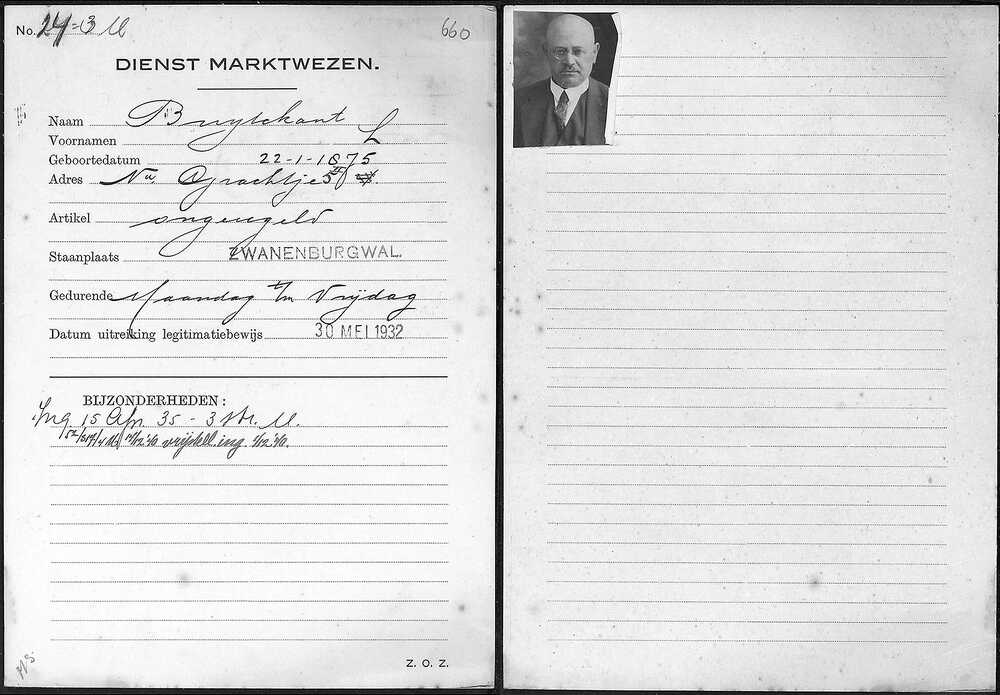 No. 24=3 M
660
DIENST MARKTWEZEN.
Naam Buytekant
Voornamen L
Geboortedatum 22-1-1875
Adres Nw. Grachtje 5
Artikel ongeregeld
Staanplaats ZWANENBURGWAL.
Gedurende Maandag t/m Vrijdag
Datum uitreiking legitimatiebewijs 30 MEI 1932
BIJZONDERHEDEN:
Ing. 15 Apr. 35 - 3 M.
vrijstell. ing. 1/12 '40.
Z. O. Z.